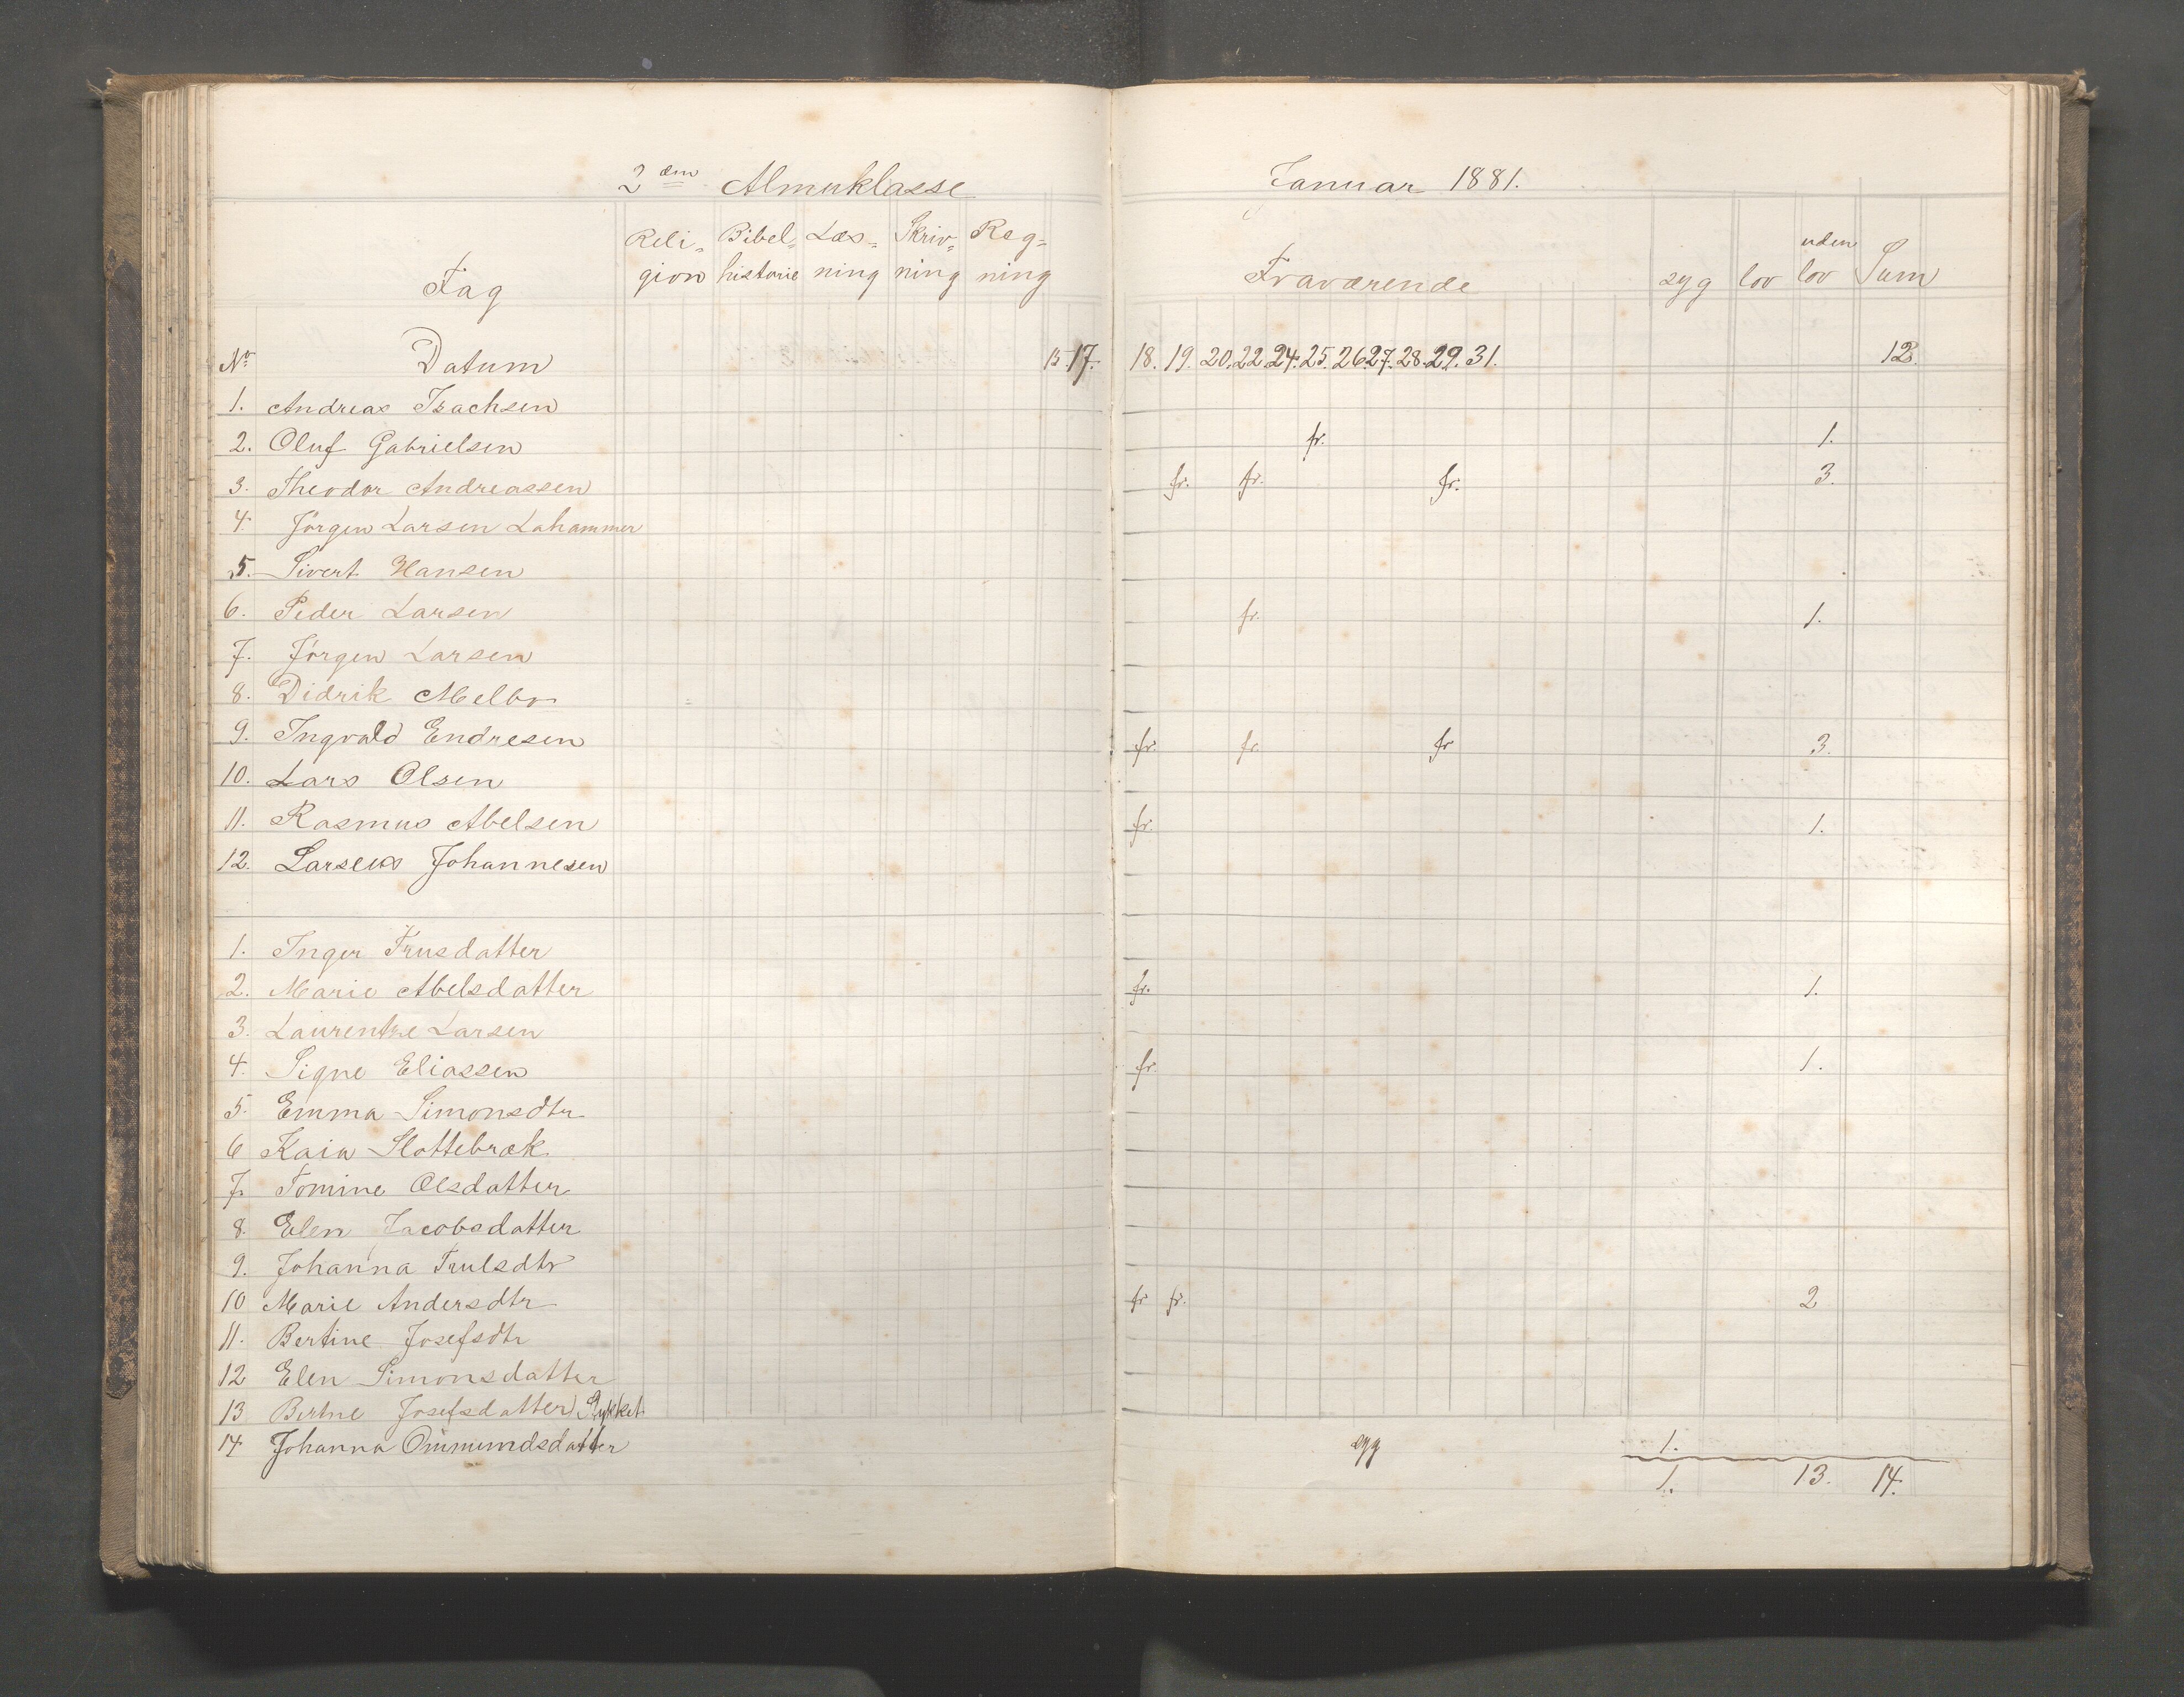 2den Almuklasse
Januar 1881.
Reli= Bibel= Læs= Skriv= Reg=
Fag gion historie ning ning ning
Fraværende syg lov uden lov Sum
No Datum 15. 17. 18. 19. 20. 22. 24. 25. 26. 27. 28. 29. 31. 12.
1. Andreas Isachsen
2. Oluf Gabrielsen fr. 1.
3. Theodor Andreassen fr. fr. fr. 3.
4. Jörgen Larsen Lahammer
5. Sivert Hansen
6. Peder Larsen fr. 1.
7. Jörgen Larsen
8. Didrik Melbo
9. Ingvald Endresen fr. fr. fr 3.
10. Lars Olsen
11. Rasmus Abelsen fr. 1.
12. Johannesen
1. Inger Trusdatter
2. Marie Abelsdatter fr. 1.
3. Laurentze Larsen
4. Signe Eliassen fr. 1.
5. Emma Simonsdtr
6 Kaia Slottebræk
7. Tomine Olsdatter
8. Elen Jacobsdatter
9. Johanna Trulsdtr
10 Marie Andersdtr fr fr. 2
11. Bertine Josefsdtr
12 Elen Simonsdatter
13 Bertine Josefsdatter Rykket
14 Johanna Ommundsdatter syg 1.
1. 13. 14.